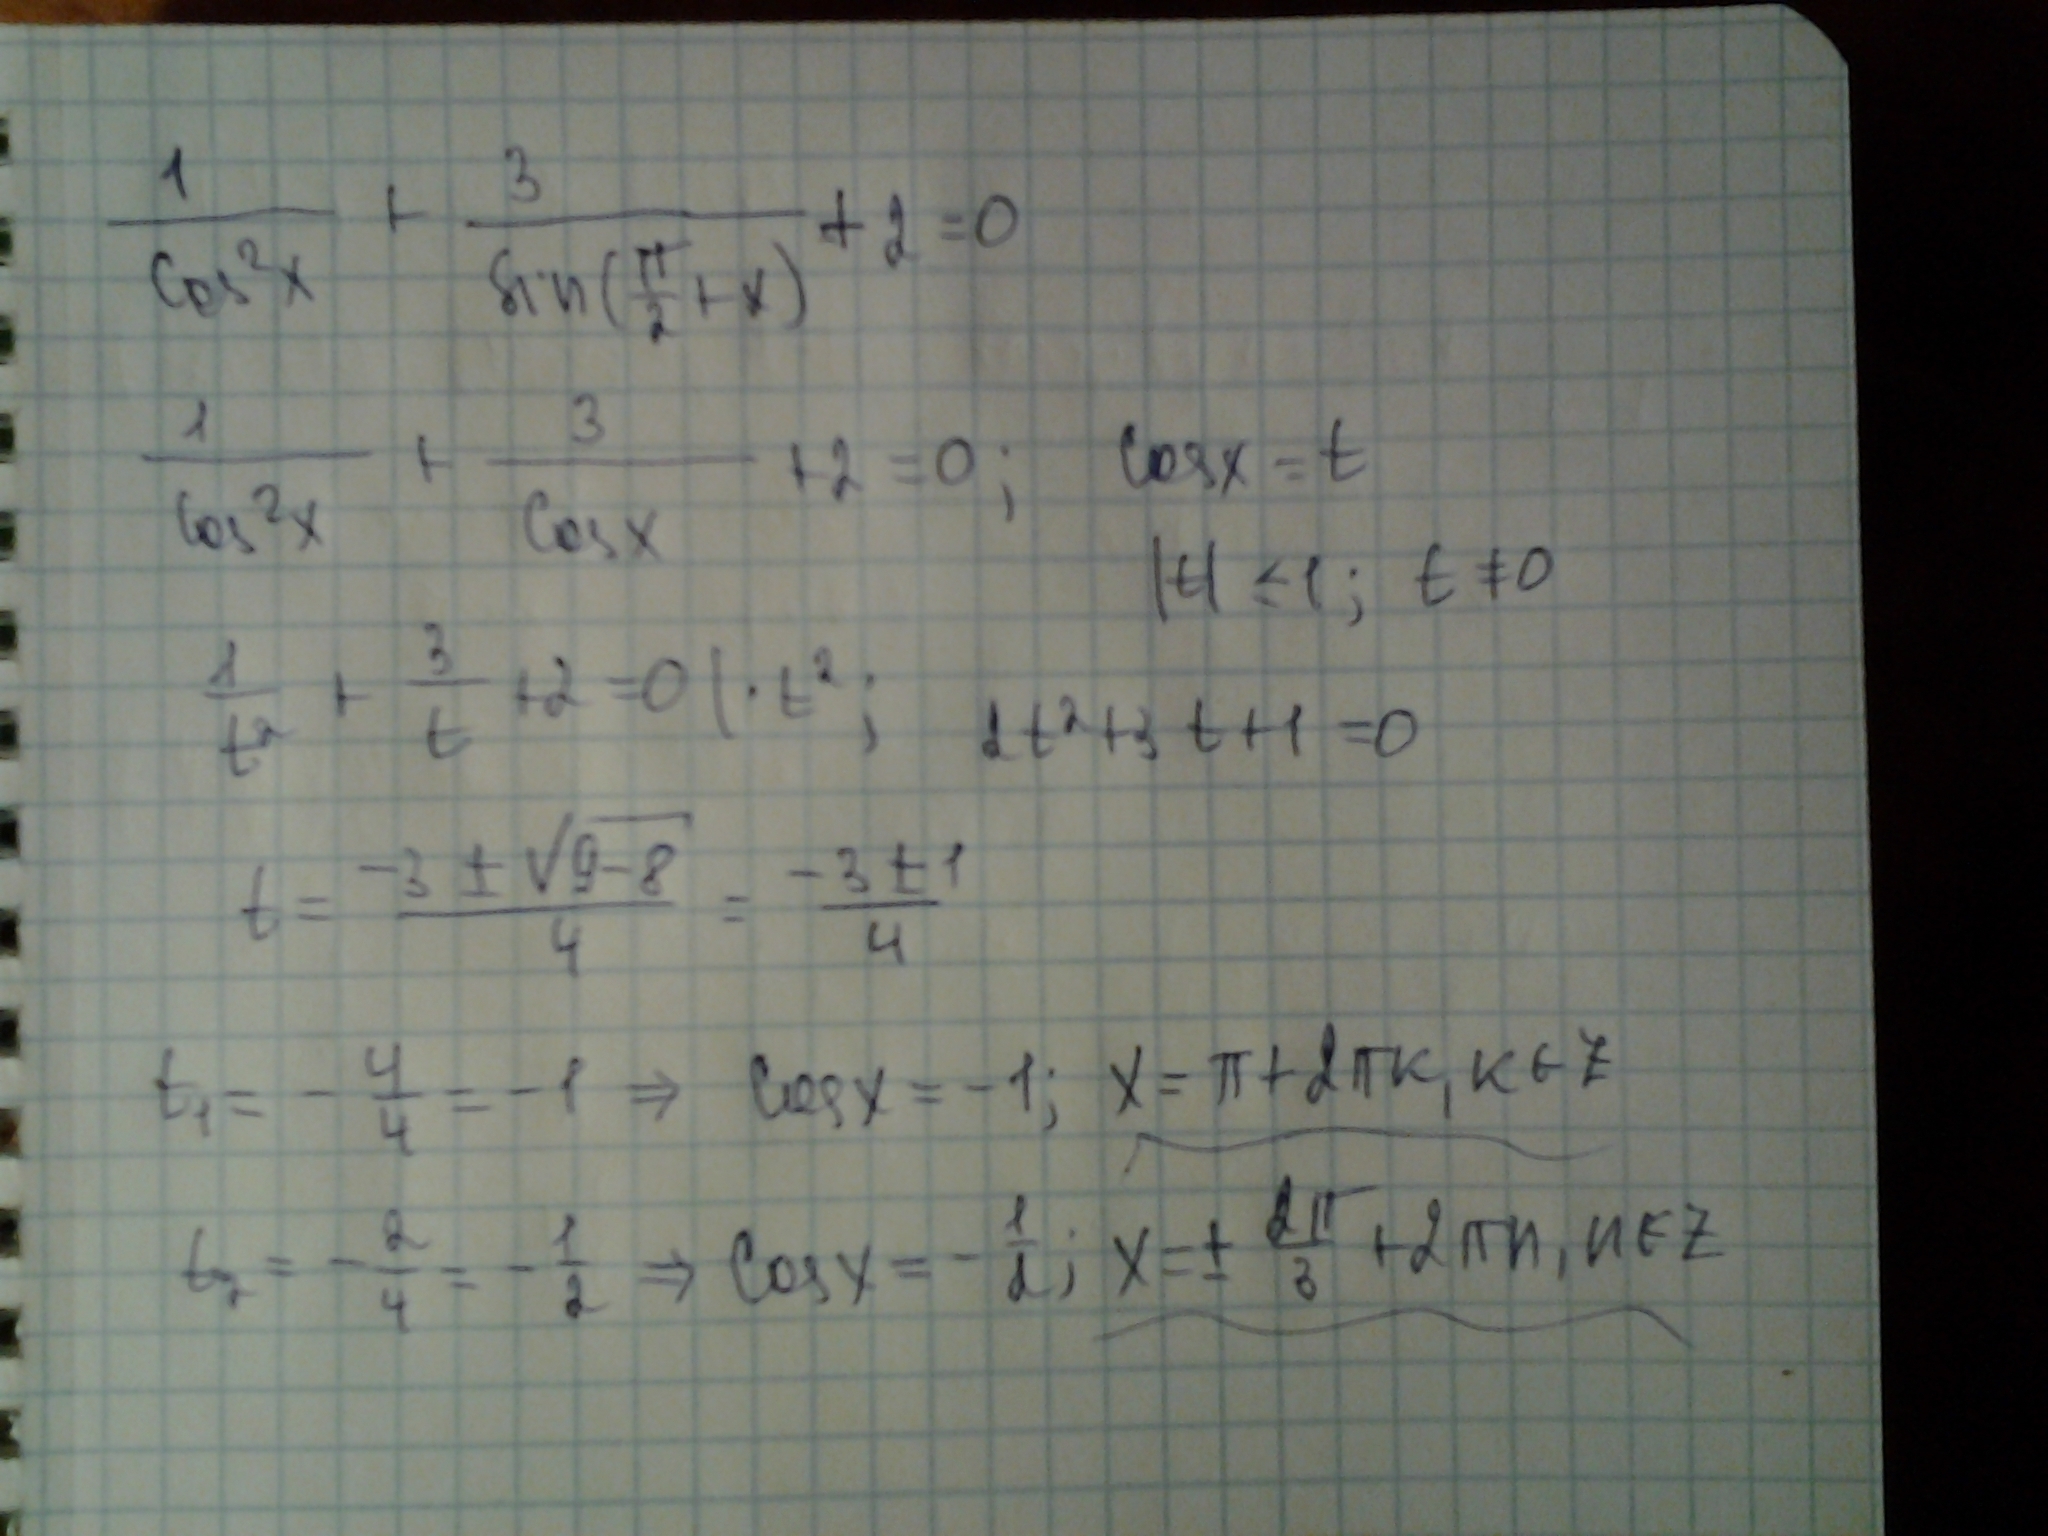 1/cos²x + 3/sin(π/2 + x) + 2 = 0
1/cos²x + 3/cosx + 2 = 0; cosx = t
|t| ≤ 1; t ≠ 0
1/t² + 3/t + 2 = 0 | · t²; 2t² + 3t + 1 = 0
t = (-3 ± √(9-8))/4 = (-3 ± 1)/4
t₁ = -4/4 = -1 ⇒ cosx = -1; x = π + 2πk, k ∈ Z
t₂ = -2/4 = -1/2 ⇒ cosx = -1/2; x = ± 2π/3 + 2πn, n ∈ Z